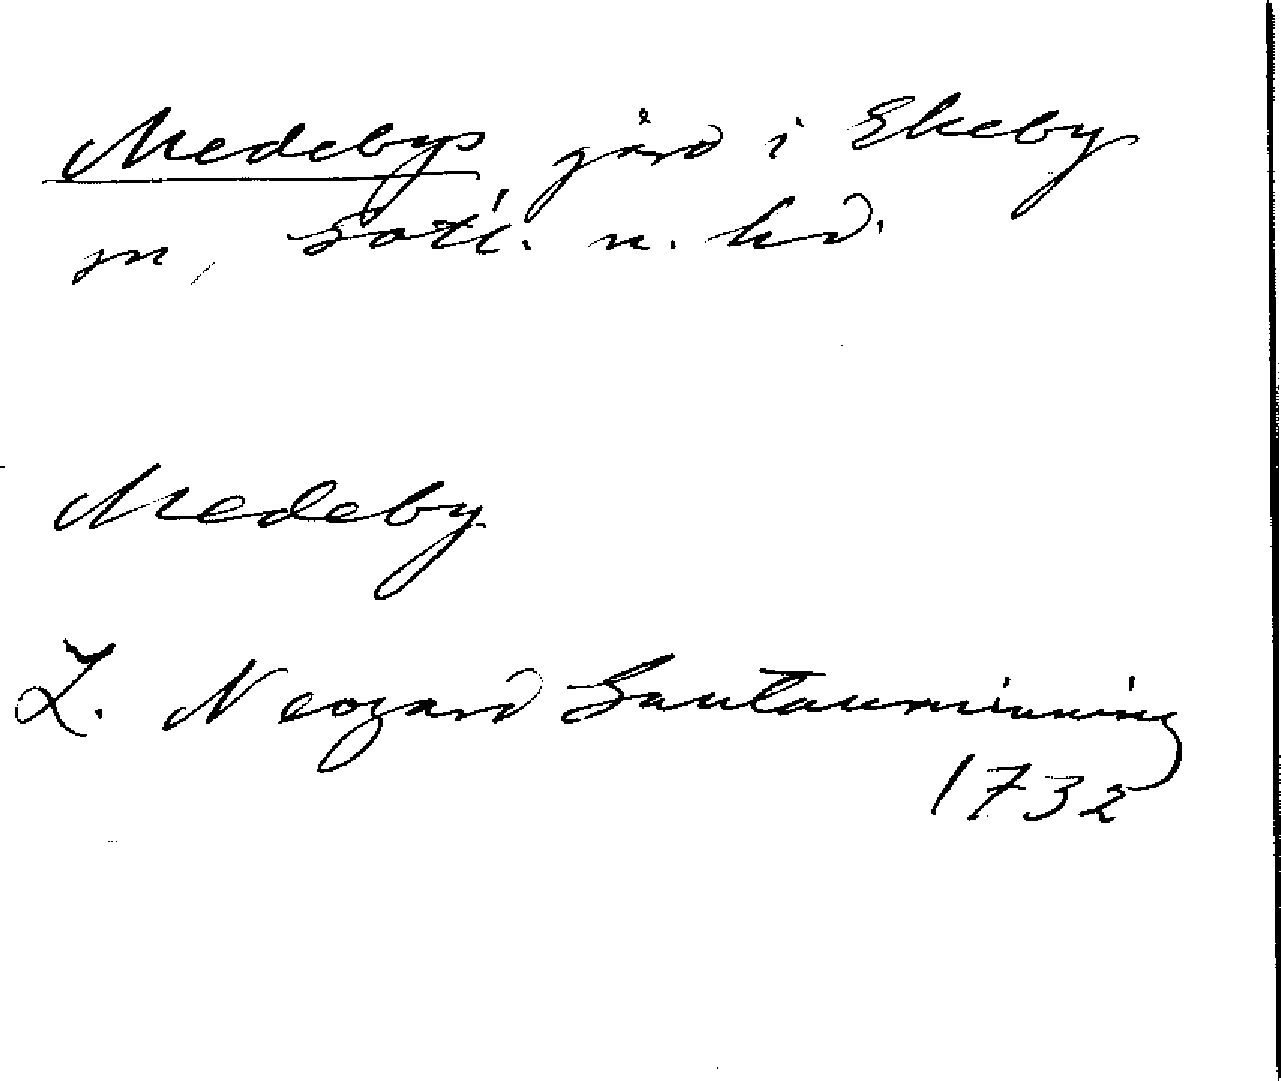 Medebys gård i Ekeby
sn, Gotl. n. hd.
Medeby
Neogard Gautauminning
1732